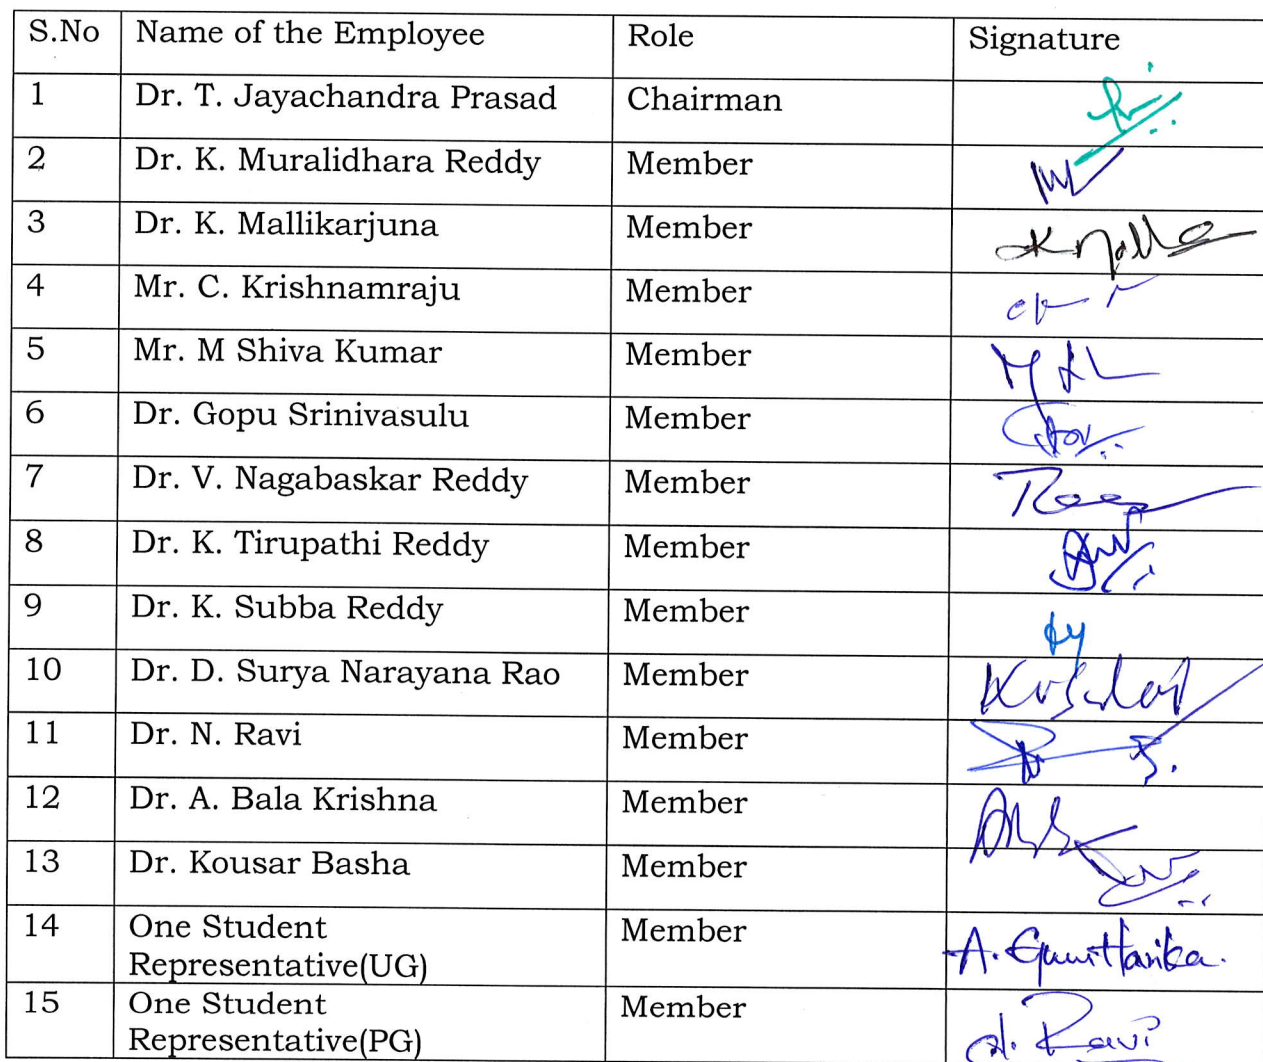 S.No Name of the Employee Role Signature
1 Dr. T. Jayachandra Prasad Chairman
2 Dr. K. Muralidhara Reddy Member
3 Dr. K. Mallikarjuna Member
4 Mr. C. Krishnamraju Member
5 Mr. M Shiva Kumar Member
6 Dr. Gopu Srinivasulu Member
7 Dr. V. Nagabaskar Reddy Member
8 Dr. K. Tirupathi Reddy Member
9 Dr. K. Subba Reddy Member
10 Dr. D. Surya Narayana Rao Member
11 Dr. N. Ravi Member
12 Dr. A. Bala Krishna Member
13 Dr. Kousar Basha Member
14 One Student Member
Representative(UG) A.
15 One Student Member
Representative(PG) Ravi